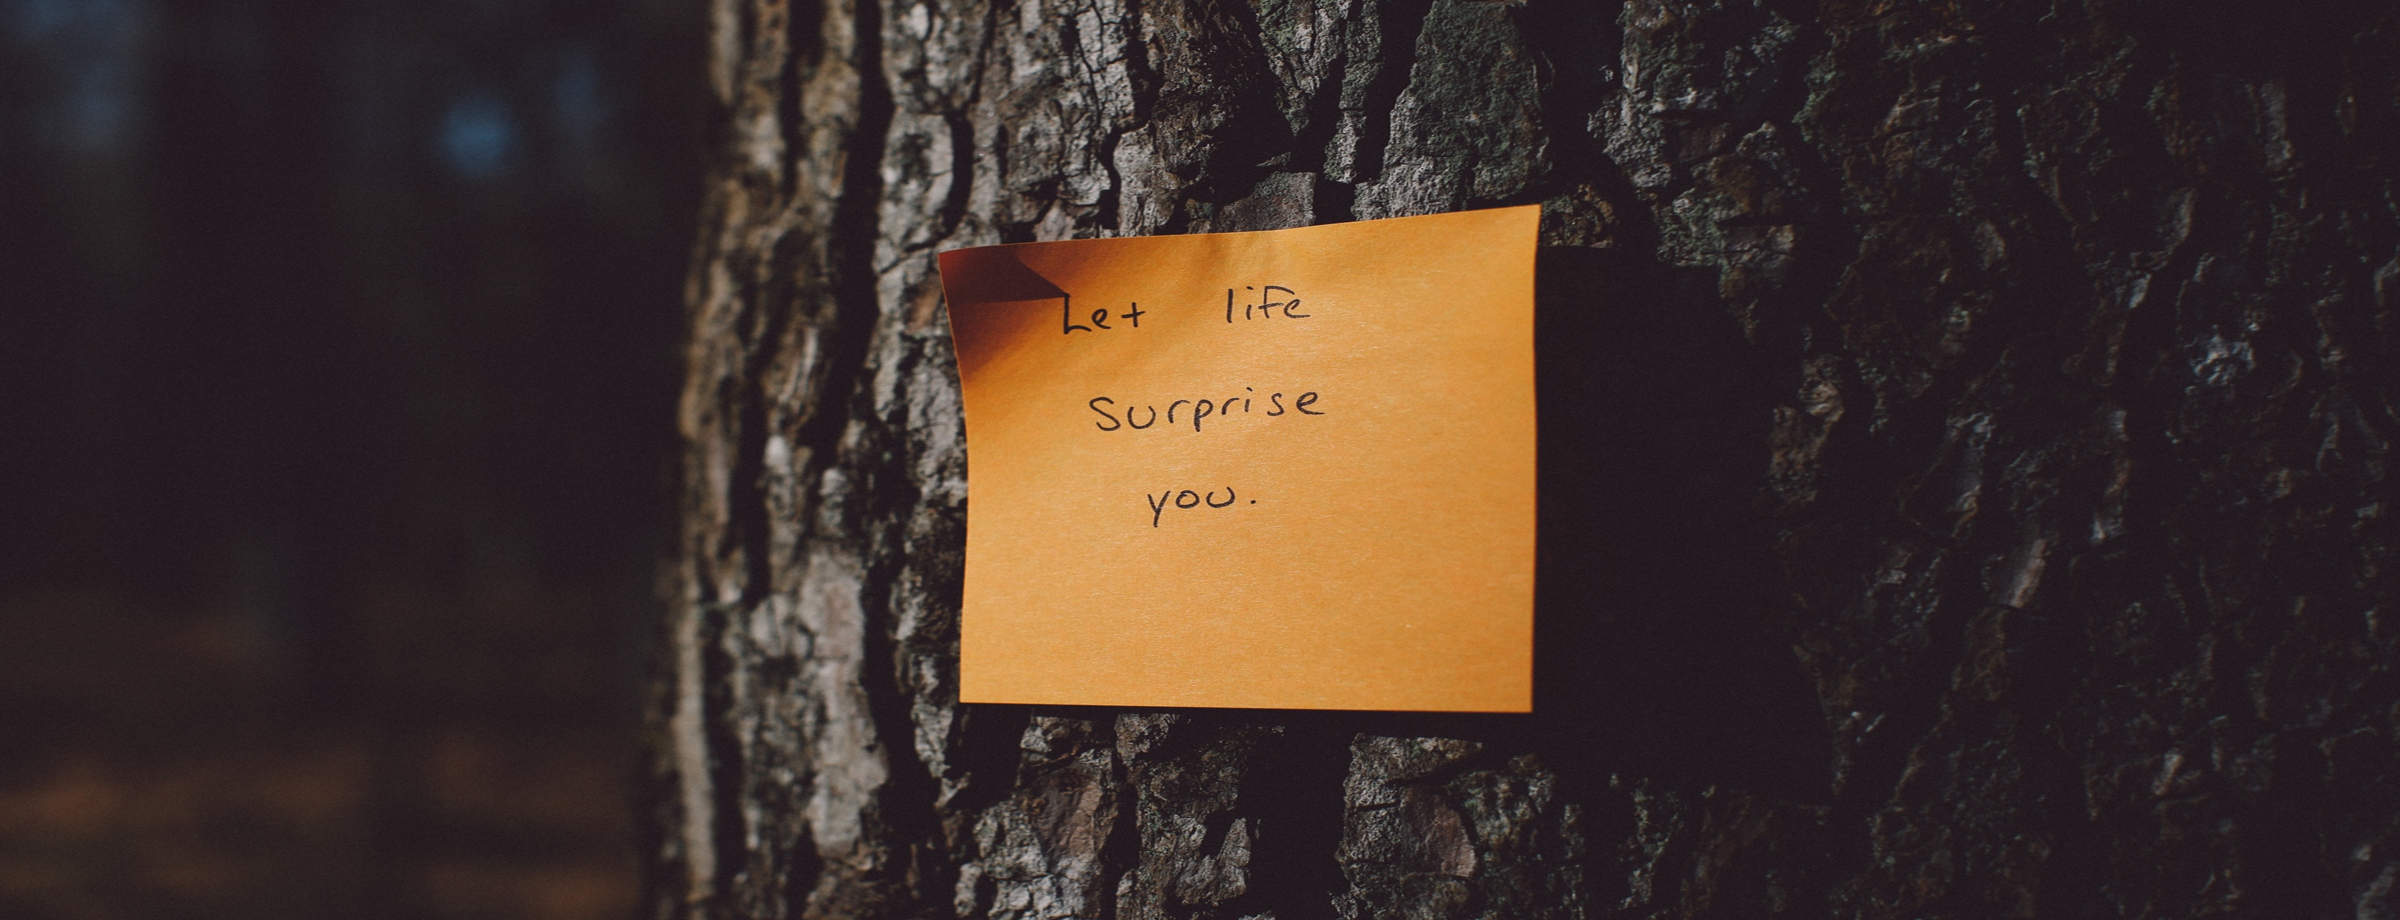 Let life
Surprise
you.